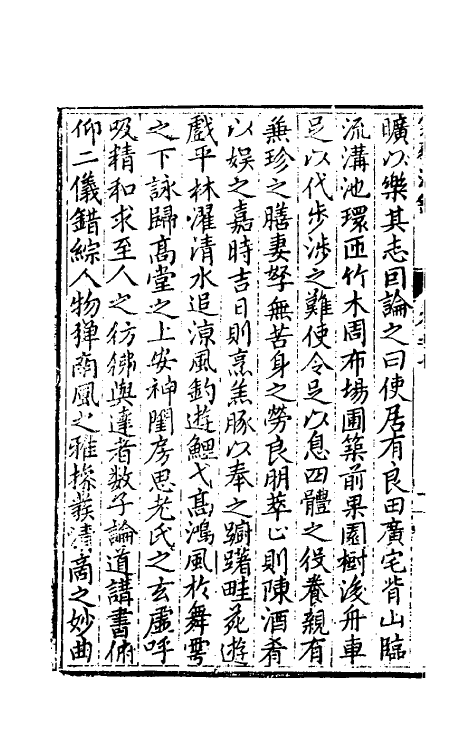 曠以樂其志因論之曰使居有良田廣宅背山臨
流溝池環匝竹木周布場圃築前果園樹後舟車
足以代步涉之難使令足以息四體之役養親有
兼珍之膳妻孥無苦身之勞良朋萃止則陳酒肴
以娛之嘉時吉日則烹羔豚以奉之躕躇畦苑遊
戲平林濯清水追涼風釣遊鯉弋高鴻風於舞雩
之下詠歸高堂之上安神閨房思老氏之玄虛呼
吸精和求至人之彷彿與達者數子論道講書俯
仰二儀錯綜人物彈南風之雅操發清商之妙曲